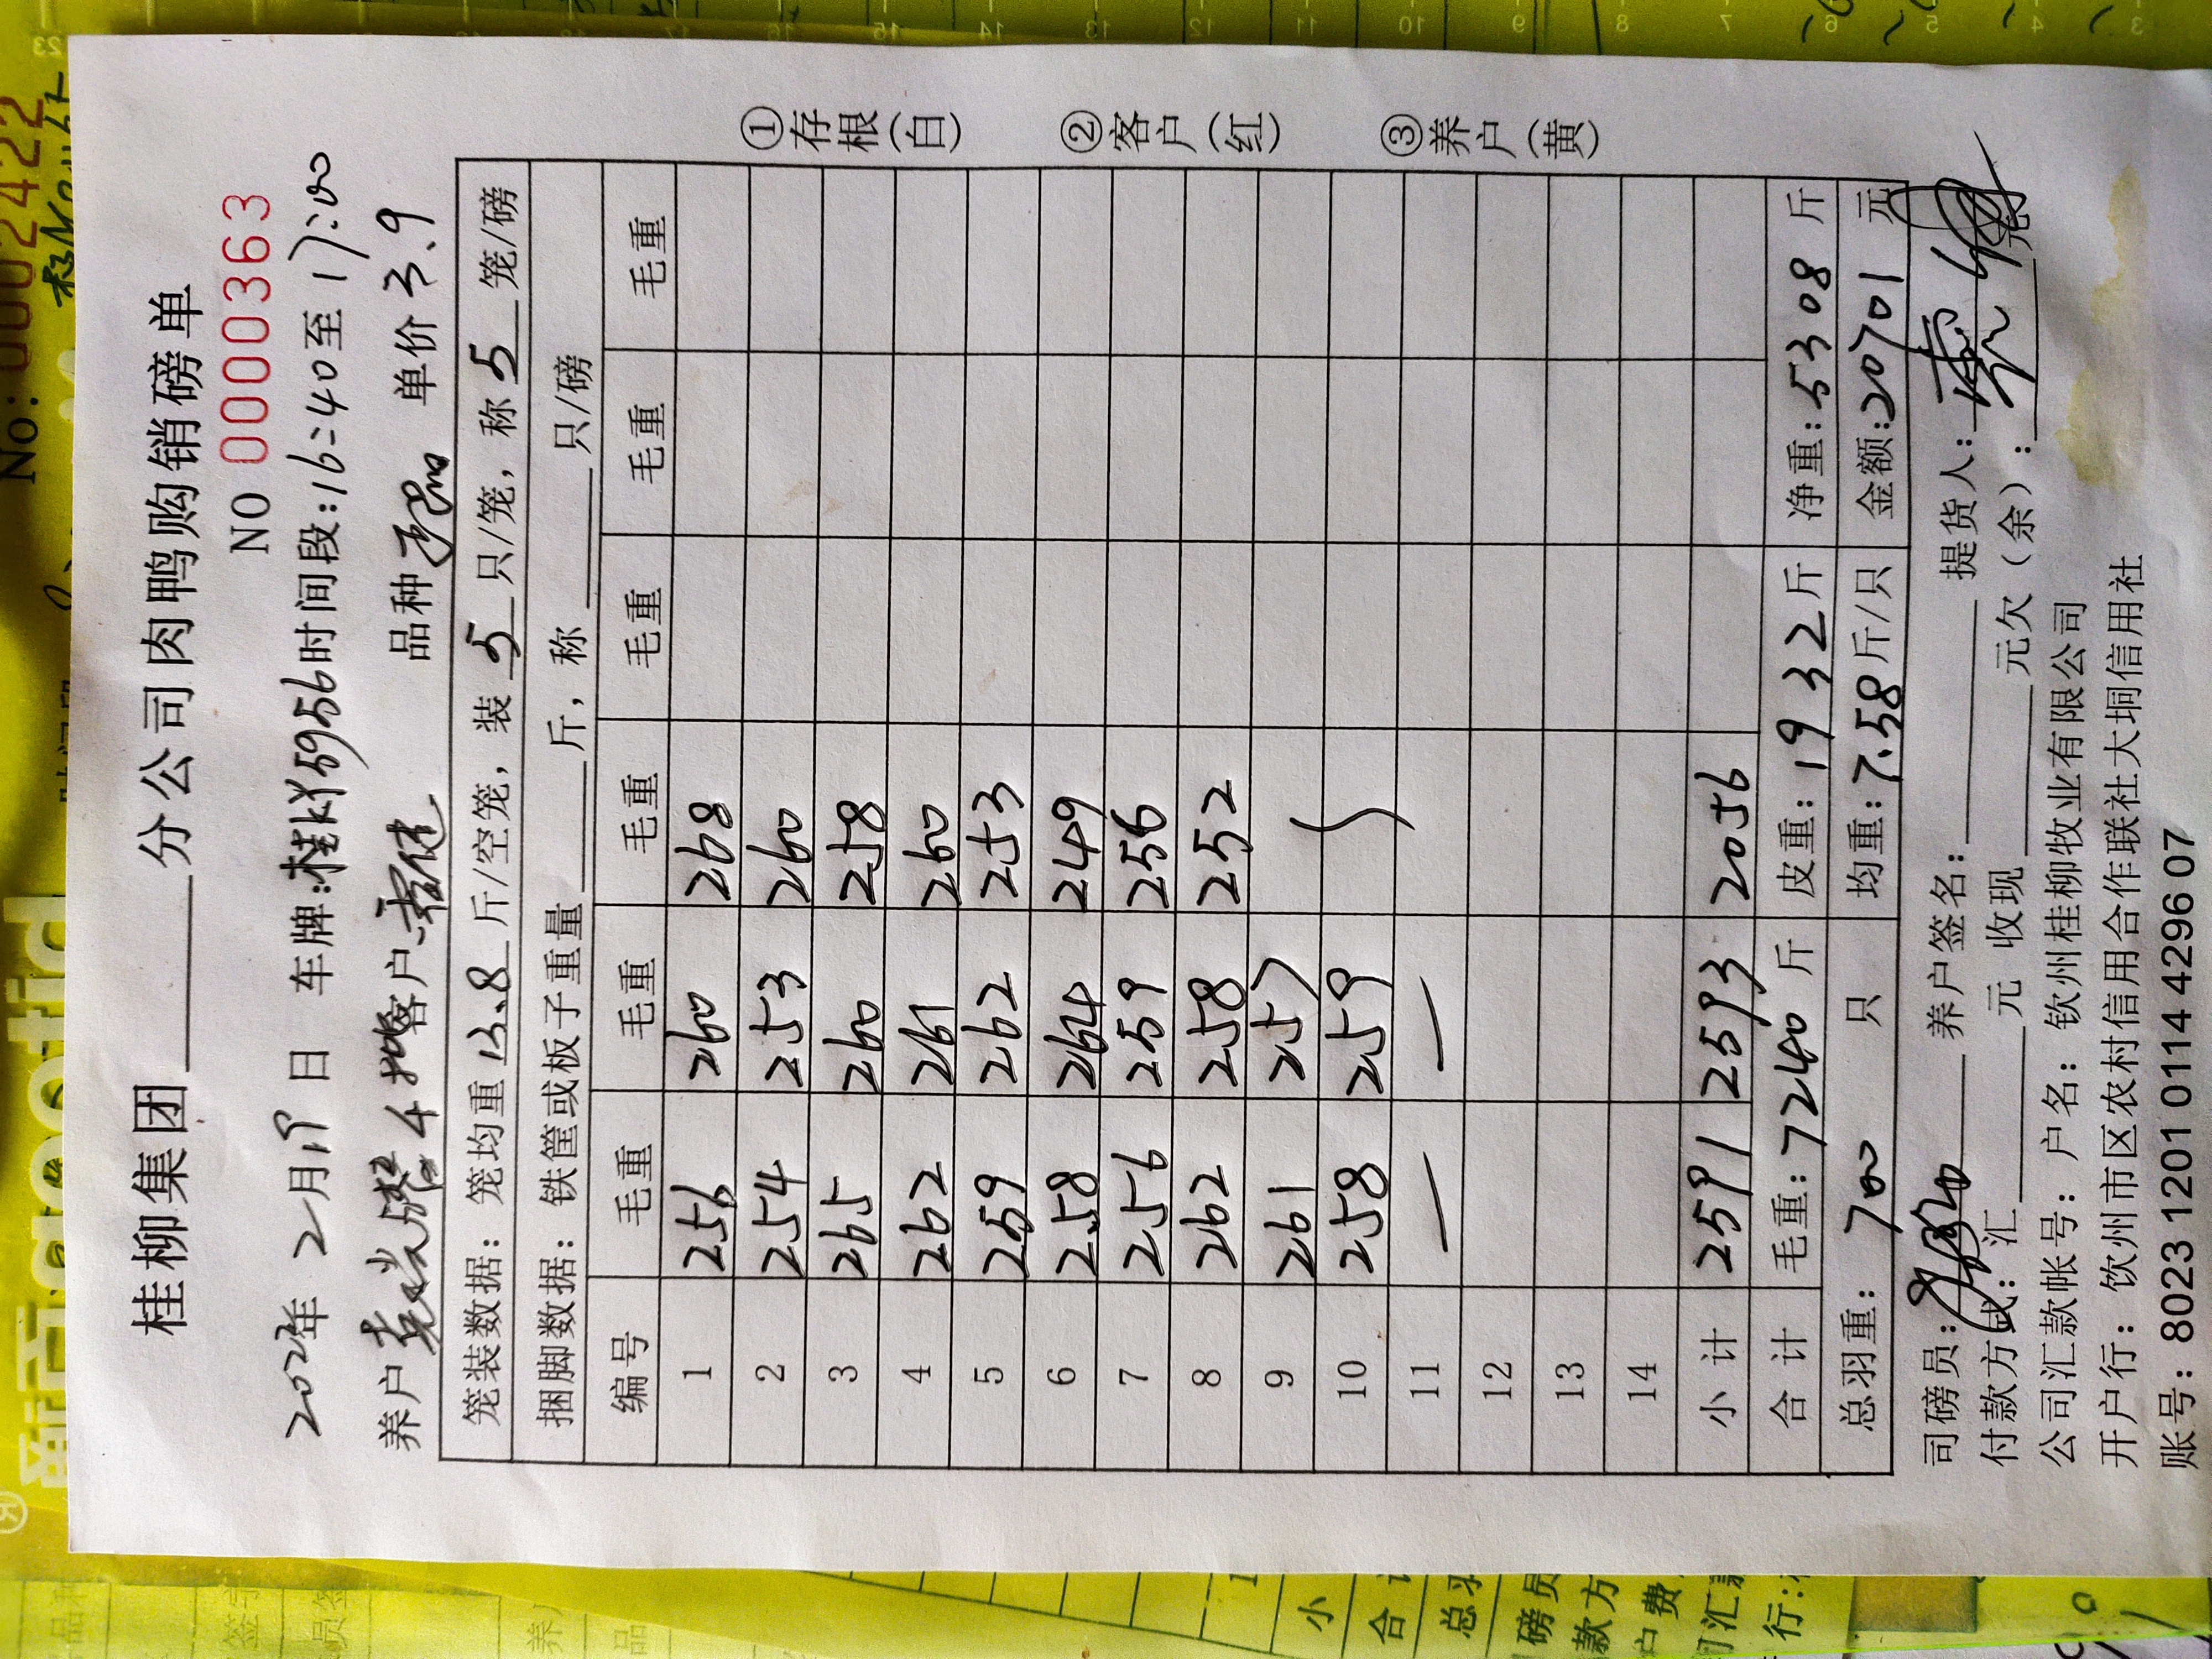 桂柳集团______分公司肉鸭购销磅单
NO 0000363
2022年 2月19日 车牌:桂KY5956时间段:16:40至17:00
养户 4 客户 品种 单价3.9
笼装数据：笼均重13.8斤/空笼，装5只/笼，称5笼/磅
捆脚数据：铁筐或板子重量______斤，称______只/磅
编号 毛重 毛重 毛重 毛重 毛重 毛重
1 256 260 268
2 254 253 260
3 265 260 258
4 262 261 260
5 259 262 253
6 258 264 249
7 256 259 256
8 262 258 252
9 261 257
10 258 259
11 — —
12
13
14
小计 2591 2593 2056
合计 毛重：7240斤 皮重：1932斤 净重：5308斤
总羽重：700只 均重：7.58斤/只 金额：20701元
①存根(白) ②客户(红) ③养户(黄)
司磅员： 养户签名： 提货人：
付款方式：汇______元 收现______元欠（余）：______元
公司汇款帐号：户名：钦州桂柳牧业有限公司
开户行：饮州市区农村信用合作联社大垌信用社
账号：8023 1201 0114 4296 07
No:0002422